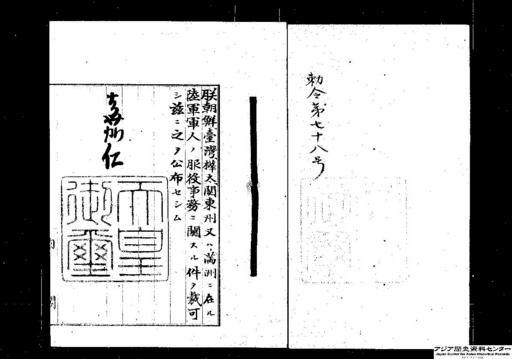 勅令第七十八号
朕朝鮮臺灣樺太關東州又ハ滿洲ニ在ル
陸軍軍人ノ服役事務ニ關スル件ヲ裁可
シ茲ニ之ヲ公布セシム
嘉仁
天皇
御璽
内閣
アジア歴史資料センター
Japan Center for Asian Historical Records